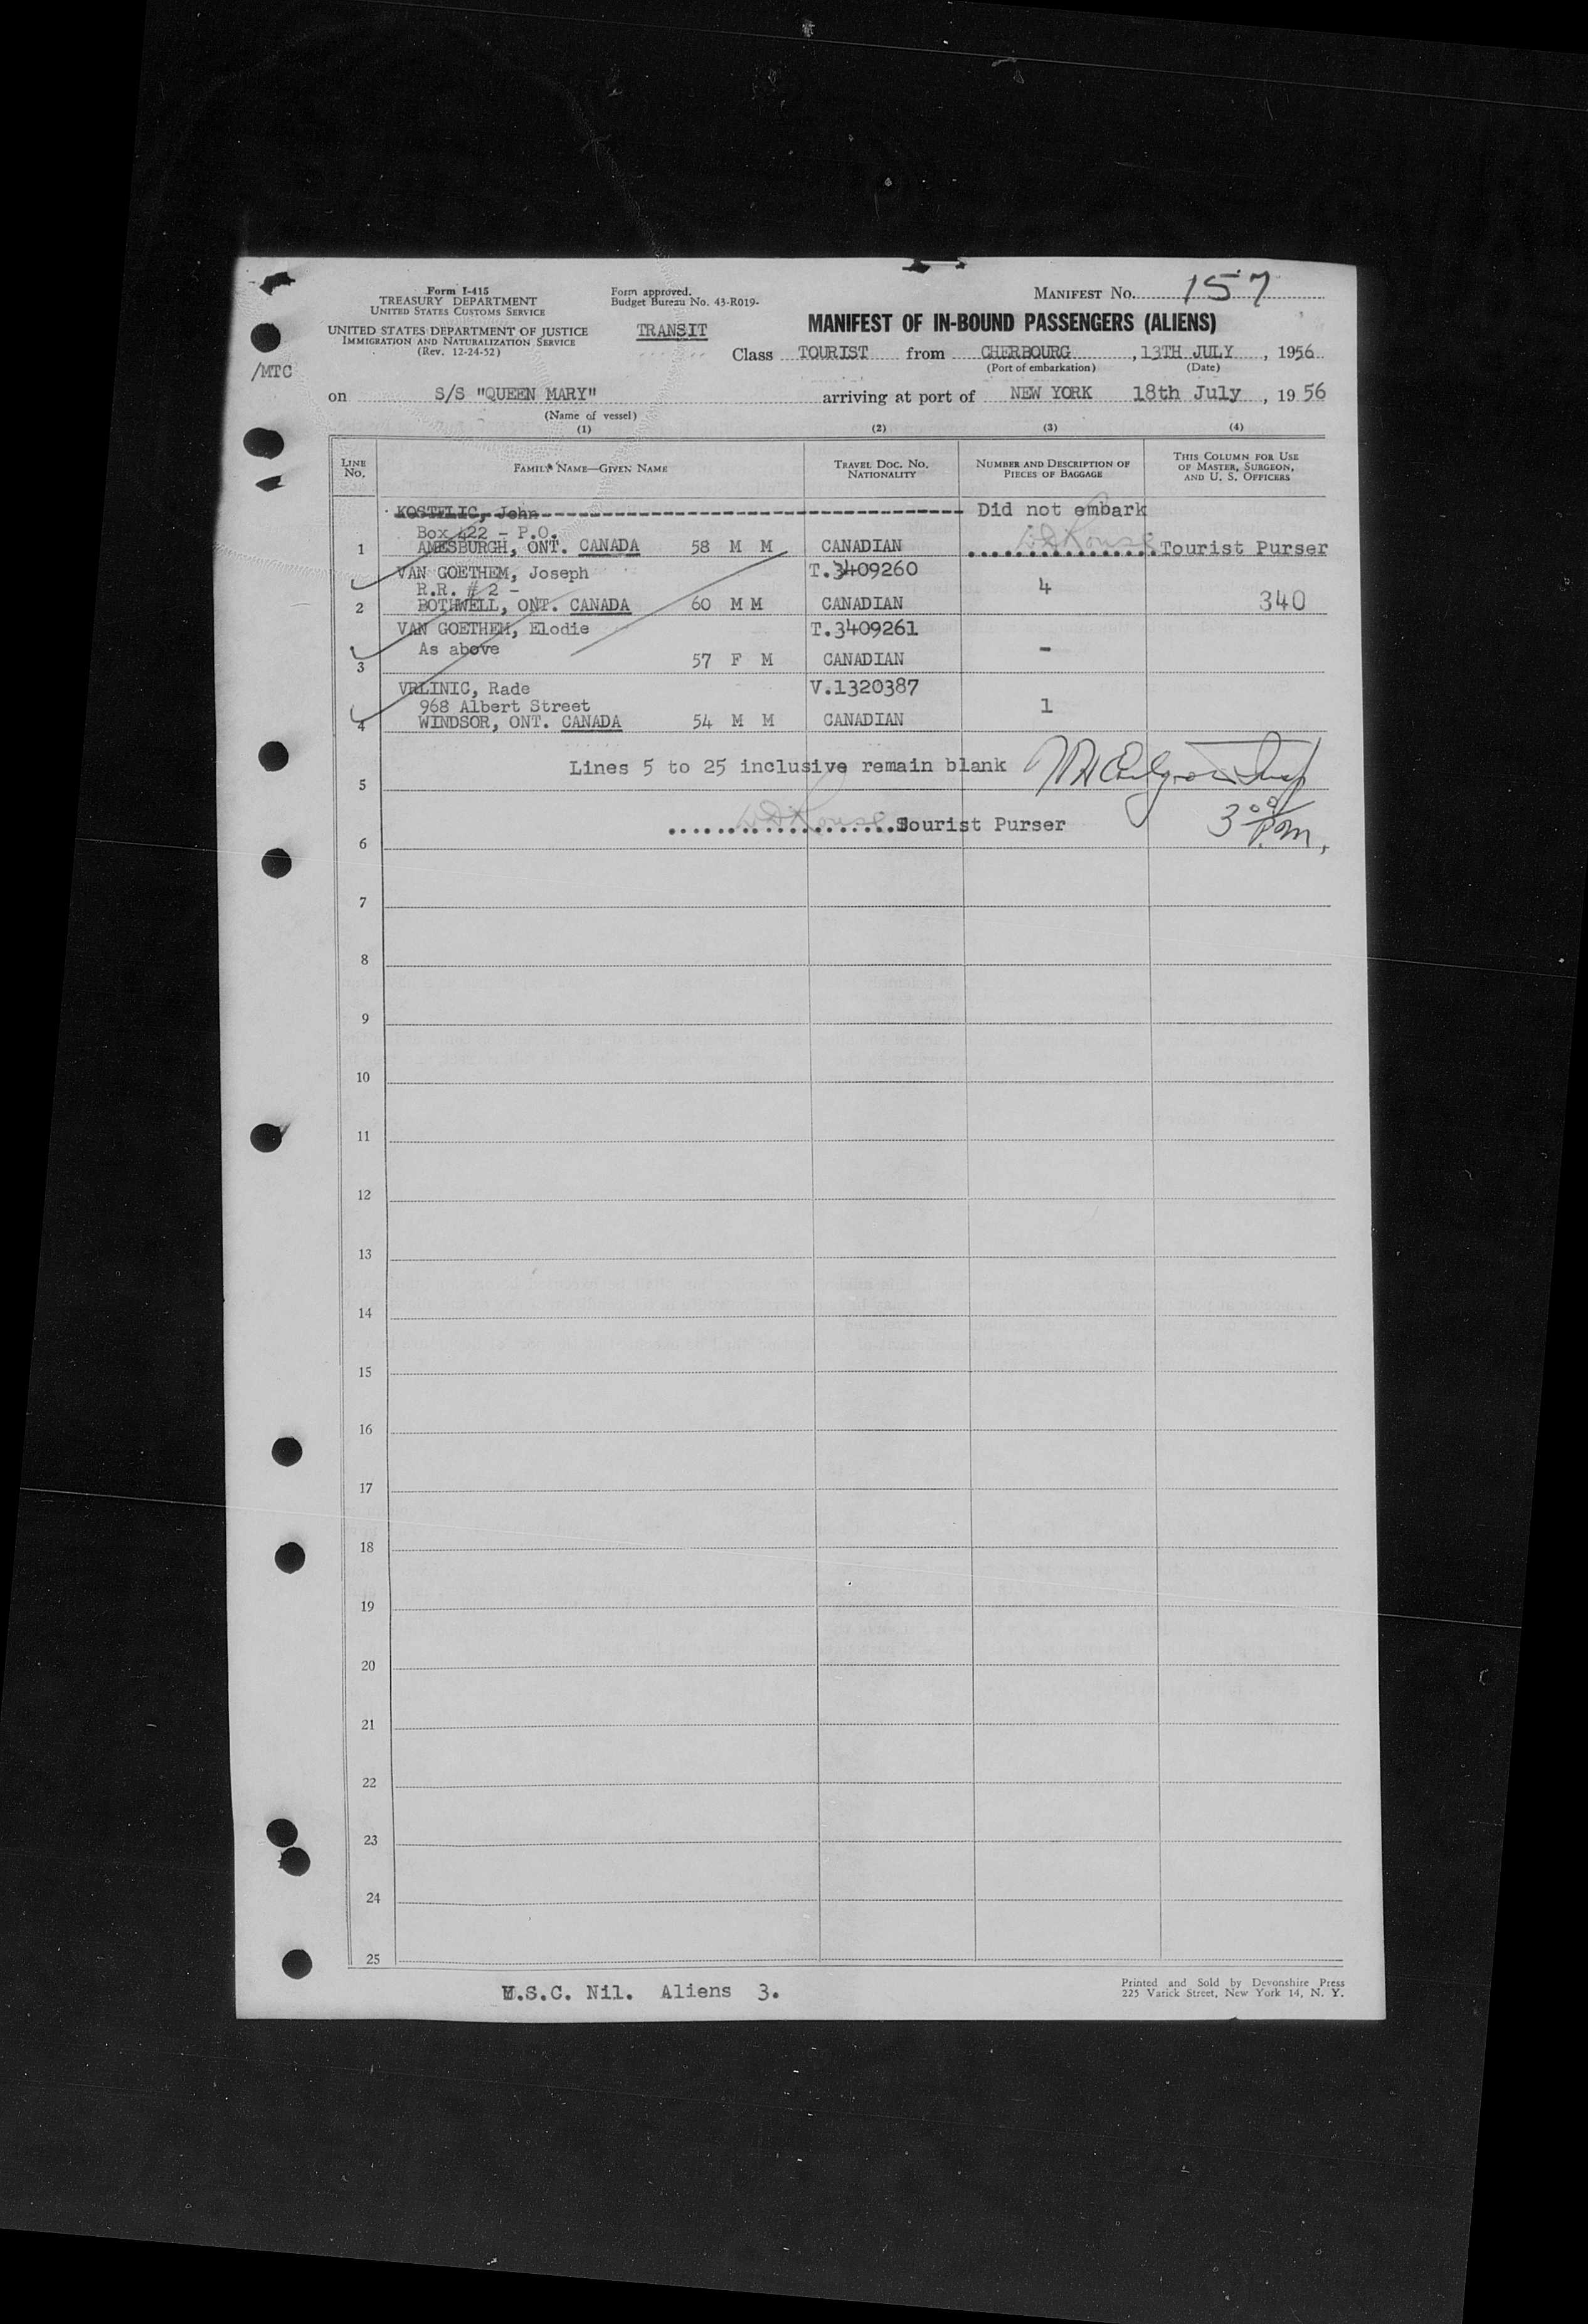 Form I-415
TREASURY DEPARTMENT
UNITED STATES CUSTOMS SERVICE
UNITED STATES DEPARTMENT OF JUSTICE
IMMIGRATION AND NATURALIZATION SERVICE
(Rev. 12-24-52)
/MTC
Form approved.
Budget Bureau No. 43-R019-
TRANSIT
MANIFEST NO. 157
MANIFEST OF IN-BOUND PASSENGERS (ALIENS)
Class TOURIST from CHERBOURG, 13TH JULY, 1956
(Port of embarkation) (Date)
on S/S "QUEEN MARY" arriving at port of NEW YORK 18th July, 1956
(Name of vessel)
(1) (2) (3) (4)
LINE NO. FAMILY NAME—GIVEN NAME TRAVEL DOC. NO. NATIONALITY NUMBER AND DESCRIPTION OF PIECES OF BAGGAGE THIS COLUMN FOR USE OF MASTER, SURGEON, AND U. S. OFFICERS
KOSTELIC, John Did not embark
Box 422 - P.O.
1 AMESBURGH, ONT. CANADA 58 M M CANADIAN Tourist Purser
VAN GOETHEM, Joseph T.3409260
R.R. # 2 - 4
2 BOTHWELL, ONT. CANADA 60 M M CANADIAN 340
VAN GOETHEM, Elodie T.3409261
As above -
3 57 F M CANADIAN
VRLINIC, Rade V.1320387
968 Albert Street 1
4 WINDSOR, ONT. CANADA 54 M M CANADIAN
Lines 5 to 25 inclusive remain blank
5
Tourist Purser 3 00 P.m.
6
7
8
9
10
11
12
13
14
15
16
17
18
19
20
21
22
23
24
25
U.S.C. Nil. Aliens 3.
Printed and Sold by Devonshire Press
225 Varick Street, New York 14, N. Y.